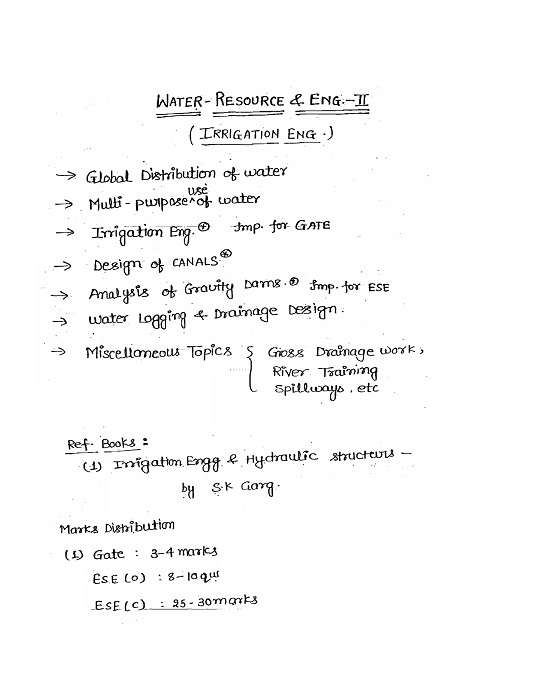 WATER-RESOURCE & ENG.-II
(IRRIGATION ENG.)
→ Global Distribution of water
→ Multi-purpose ^use of water
→ Irrigation Eng.⊛ Imp. for GATE
→ Design of CANALS⊛
→ Analysis of Gravity Dams.⊛ Imp. for ESE
→ Water Logging & Drainage Design.
→ Miscellaneous Topics { Cross Drainage work,
River Training
Spillways, etc
Ref. Books:
(1) Irrigation Engg & Hydraulic structurs -
by S.K Garg.
Marks Distribution
(1) Gate : 3-4 marks
ESE (O) : 8-10 qus
ESE (C) : 25-30 marks